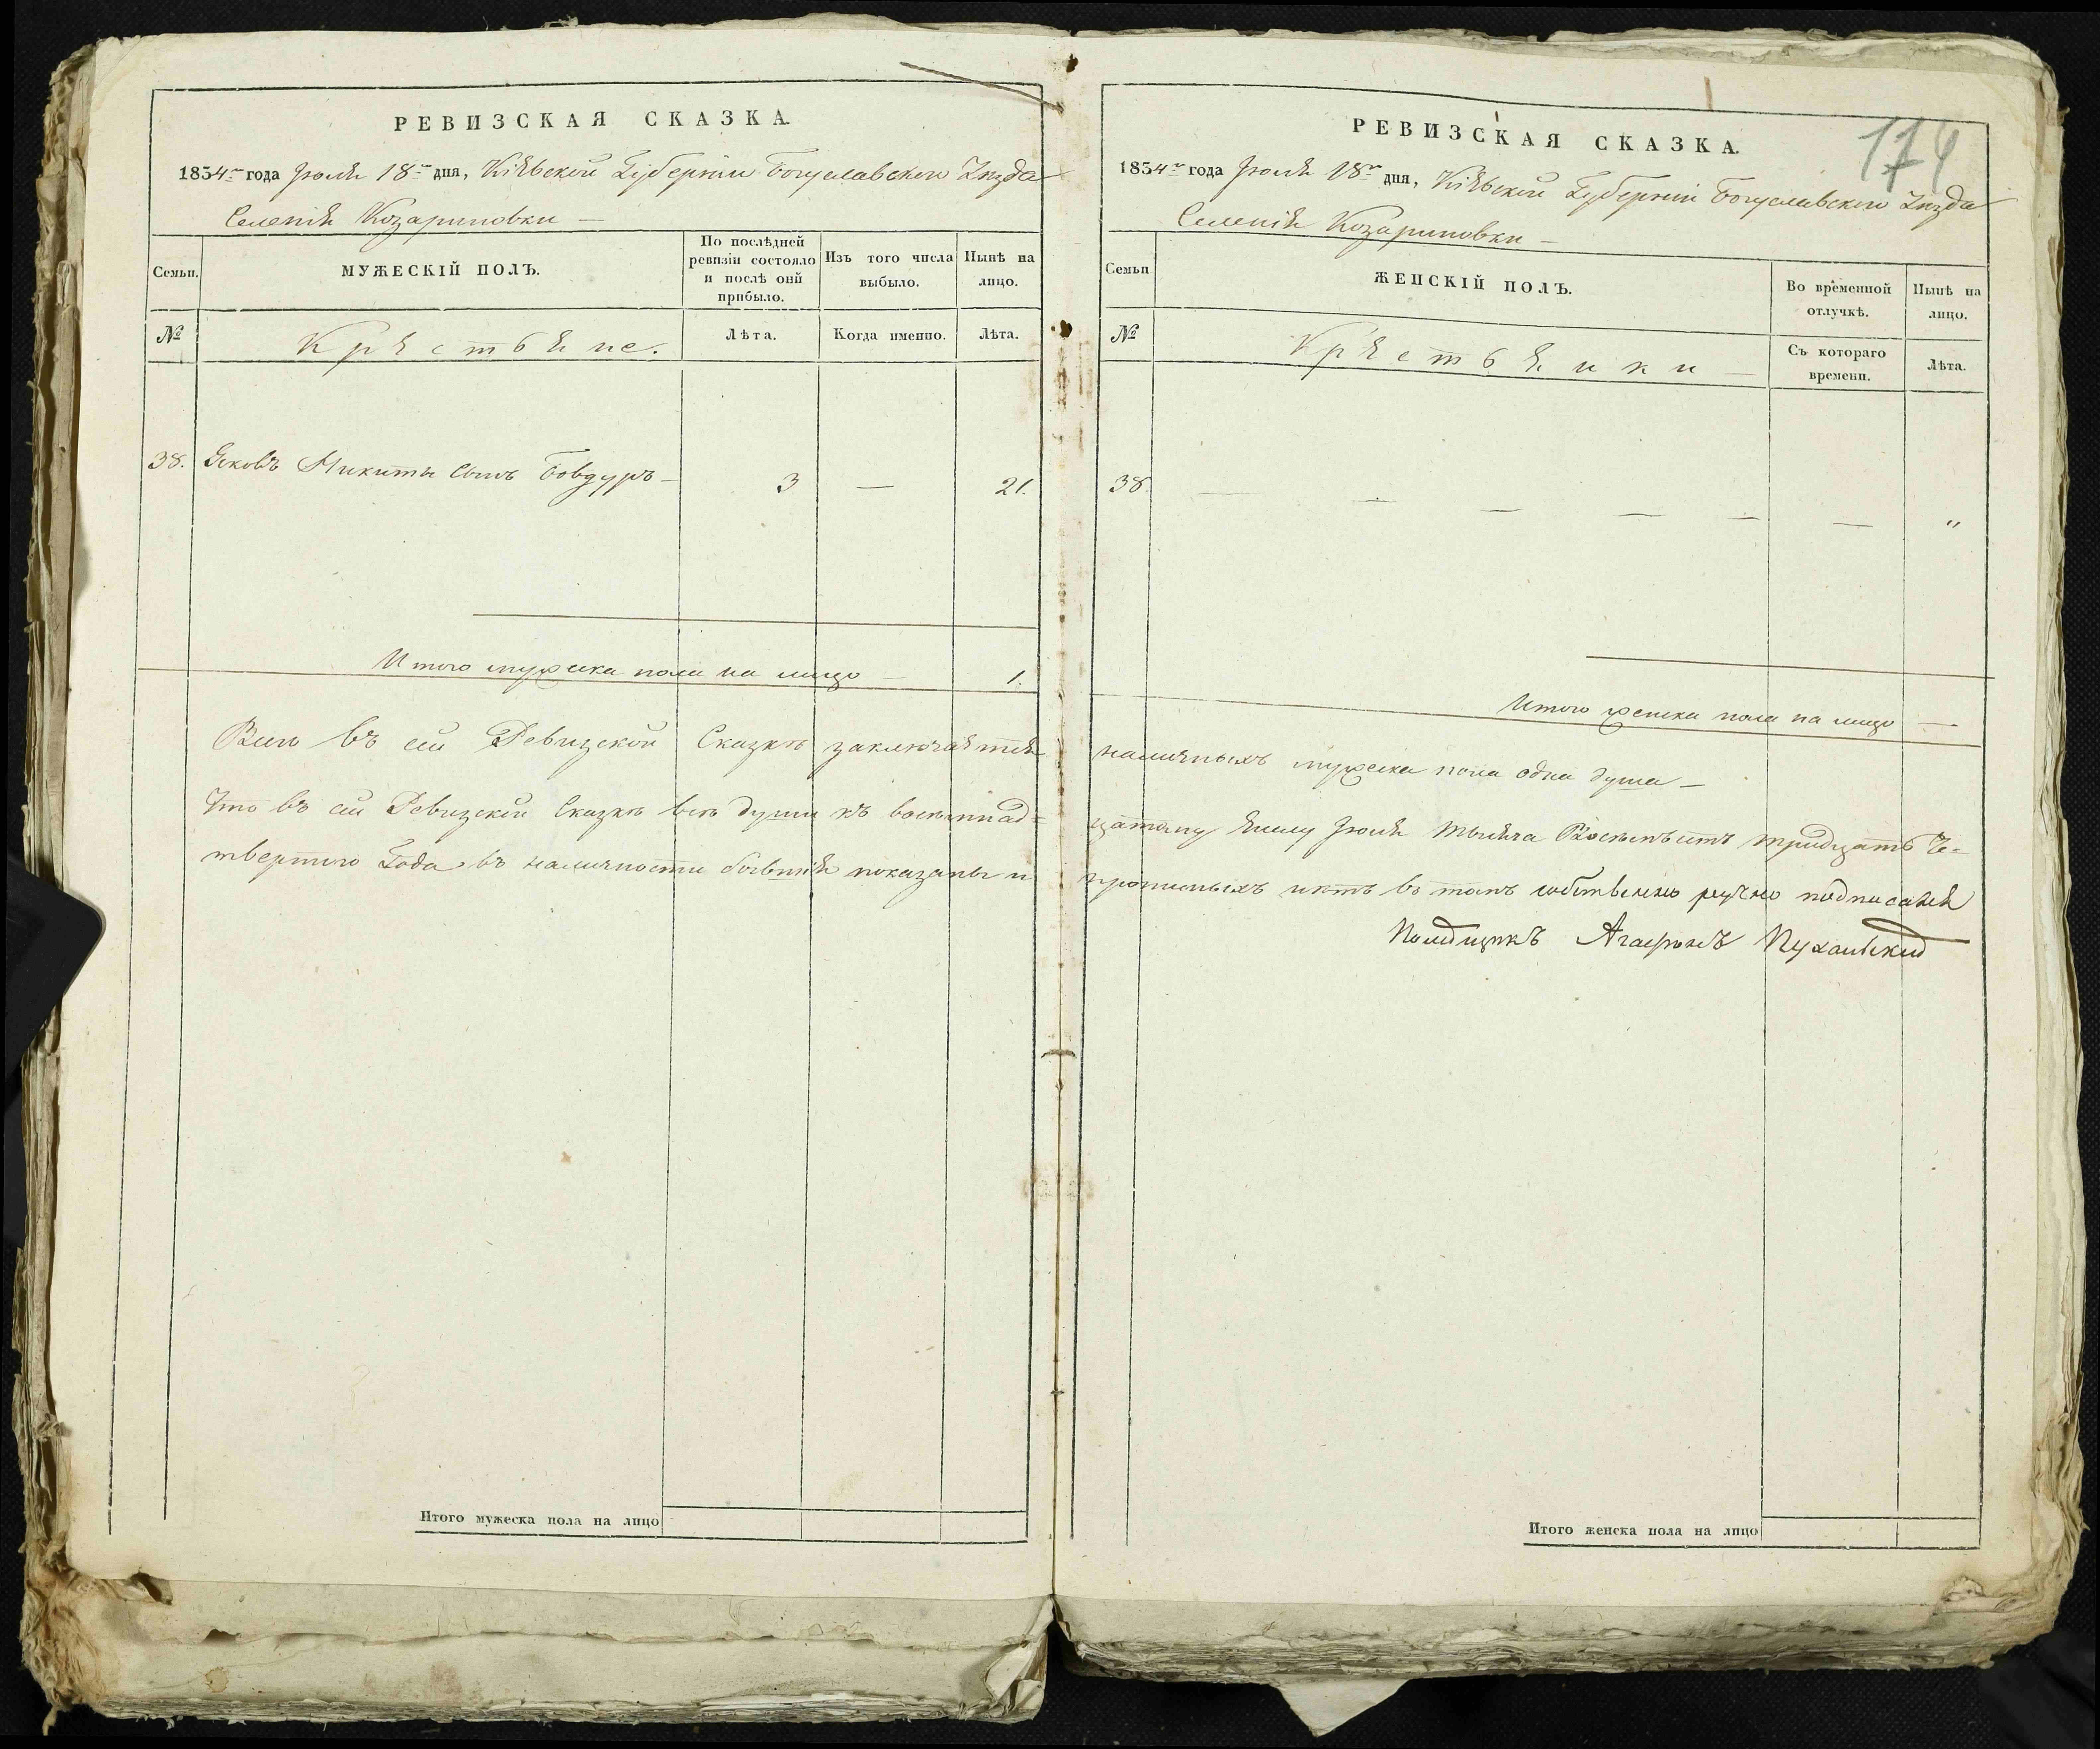 РЕВИЗСКАЯ СКАЗКА.
1834го года Июля 18го дня, Кіевской Губерніи Богуславского Уезда
Селенія Козариновки —
Семьи.
МУЖЕСКІЙ ПОЛЪ.
По послѣдней ревизіи состояло и послѣ оной прибыло.
Изъ того числа выбыло.
Нынѣ на лицо.
№
Крестьяне.
Лѣта.
Когда именно.
Лѣта.
38. Яковъ Микиты Сынъ Бовдуръ — 3 — 21.
Итого мужеска пола на лицо — 1.
Всего въ сей Ревизской Сказкѣ заключается
Что въ сей Ревизской Сказкѣ всѣ души къ восемнад=
твертого Года въ наличности бывшія показаны и
Итого мужеска пола на лицо
РЕВИЗСКАЯ СКАЗКА.
174
1834го года Июля 18го дня, Кіевской Губерніи Богуславского Уезда
Селенія Козариновки —
Семьи
ЖЕНСКІЙ ПОЛЪ.
Во временной отлучкѣ.
Нынѣ на лицо.
№
Крестьянки —
Съ котораго времени.
Лѣта.
38. — — — — — — "
Итого женска пола на лицо —
наличныхъ мужеска пола одна душа —
цатому числу Июля тысяча Восемьсотъ тридцать Че=
прописныхъ нѣтъ въ томъ собственно ручно подписался
Помещикъ Пухальский
Итого женска пола на лицо